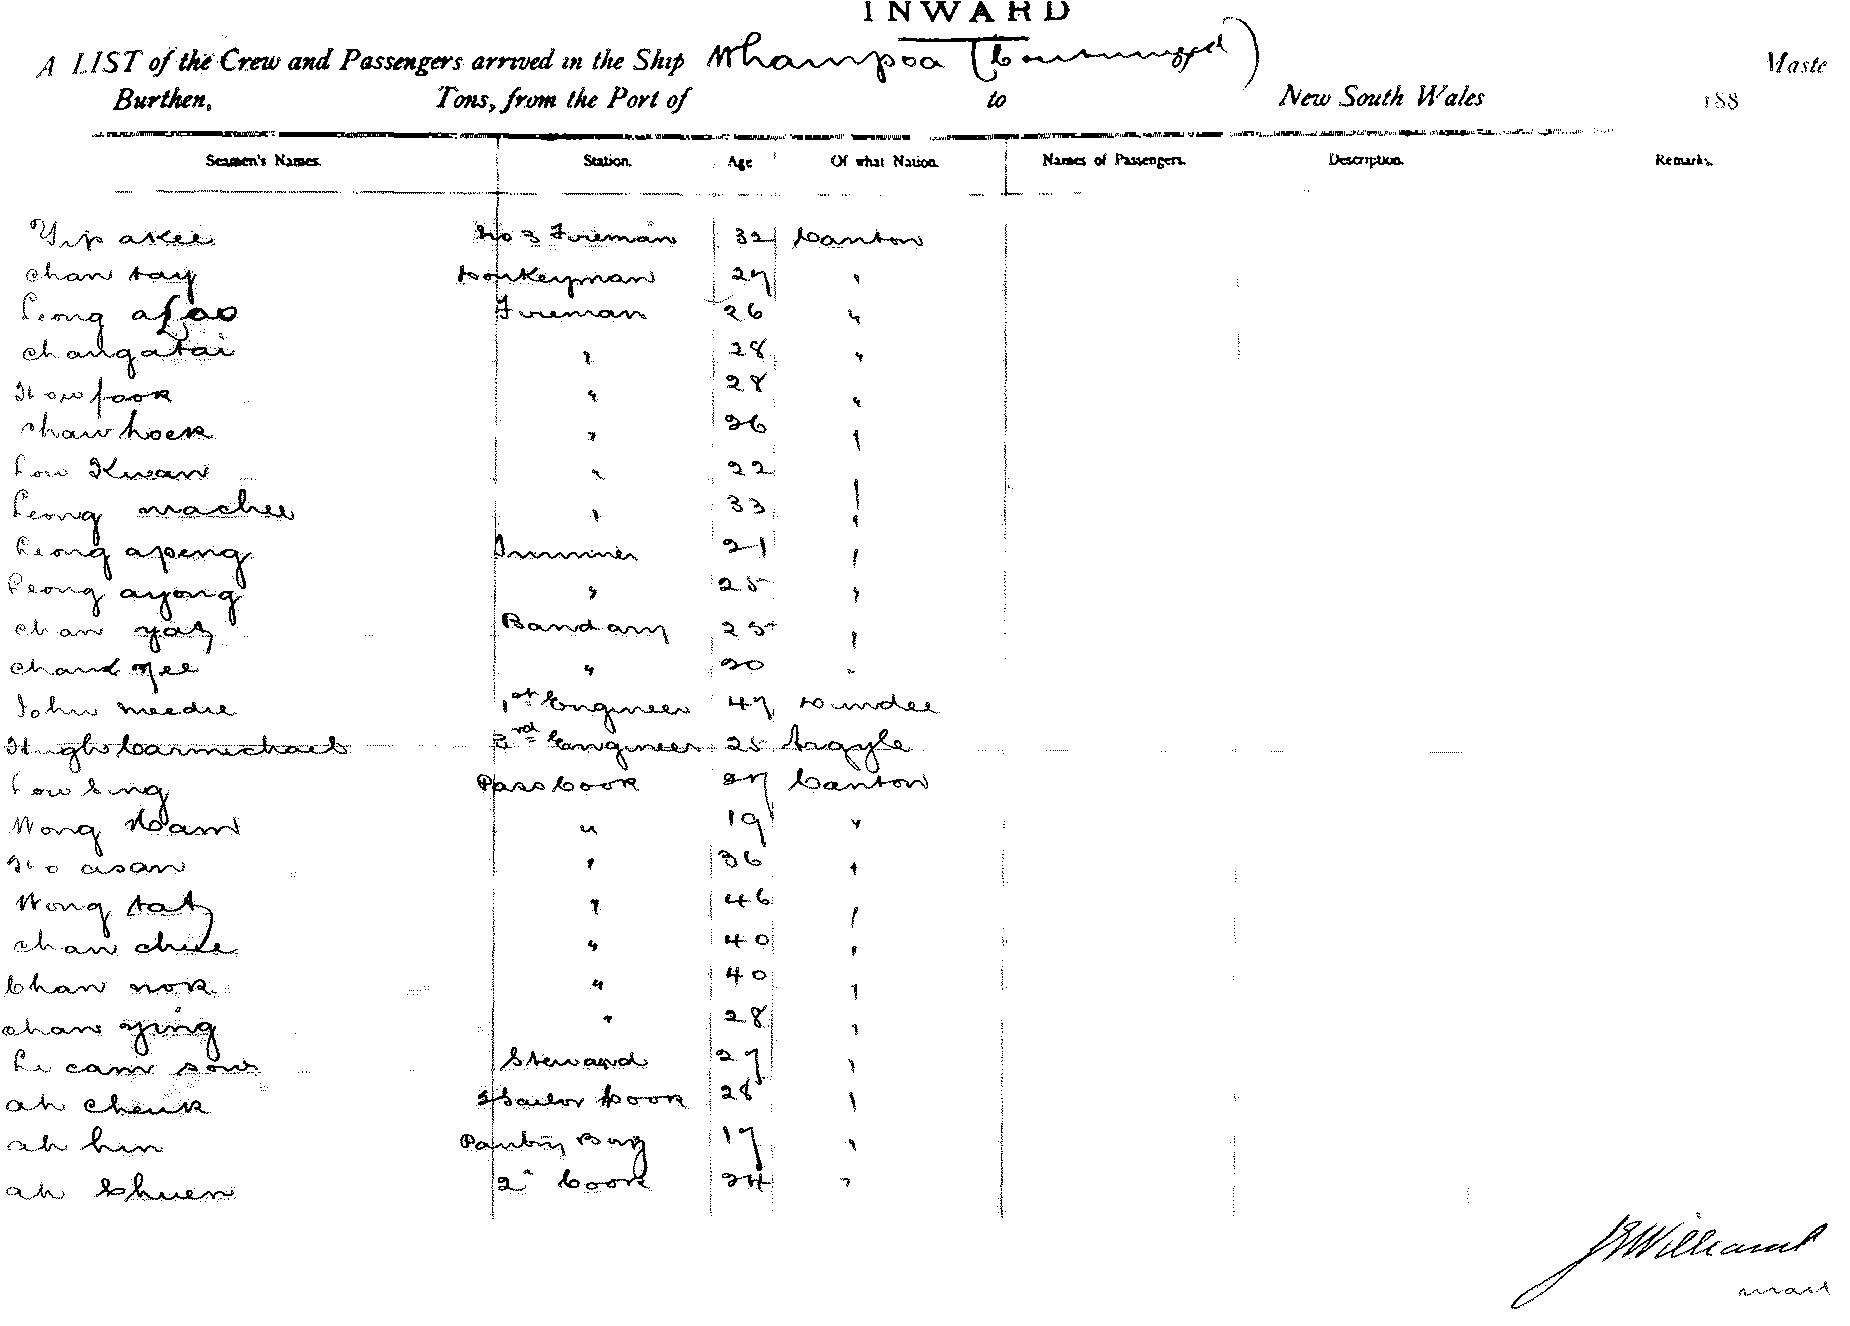 INWARD
A LIST of the Crew and Passengers arrived in the Ship Whampoa (Continued) Maste
Burthen, Tons, from the Port of to New South Wales 188
Seamen's Names. Station. Age Of what Nation. Names of Passengers. Description. Remarks.
Yip akee No 3 Fireman 32 Canton
chan tay Donkeyman 27 "
Leong afoo Fireman 26 "
changatai " 28 "
How fook " 28 "
chaw hoek " 26 "
Low Kwan " 22 "
Leong machee " 33 "
Leong apeng Trimmer 21 "
Leong ayong " 25 "
chan yat 25 "
yee " 20 "
John meedie 1st Engineer 47 Dundee
Hugh Carmichael 3rd Engineer 25 Argyle
Low Sing Pass Cook 27 Canton
Wong Kam " 19 "
Ho asan " 36 "
Wong tat " 46 "
chan chee " 40 "
Chan nok " 40 "
chan ying " 28 "
Le cam sow Steward 27 "
ah cheuk Sailor Cook 28 "
ah hin Pantry Boy 17 "
ah Chuen 2" Cook 24 "
Williams